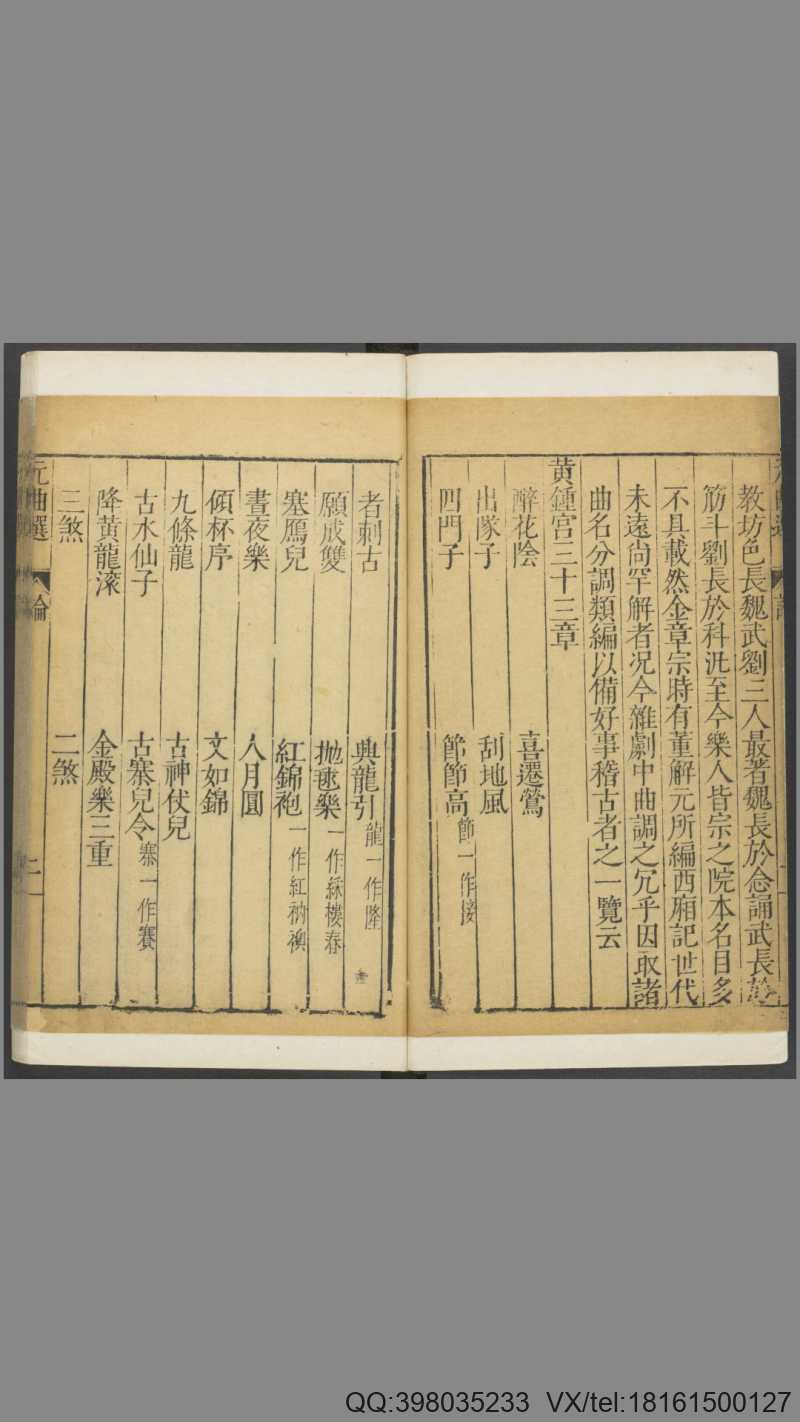 教坊色長魏武劉三人最著魏長於念誦武長於
筋斗劉長於科汎至今樂人皆宗之院本名目多
不具載然金章宗時有董解元所編西廂記世代
未遠尚罕解者况今雜劇中曲調之冗乎因取諸
曲名分調類編以備好事稽古者之一覽云
黃鍾宮三十三章
醉花陰 喜遷鶯
出隊子 刮地風
四門子 節節高節一作接
者刺古 興龍引龍一作隆
願成雙 拋毬樂一作綵樓春
塞鴈兒 紅錦袍一作紅衲襖
晝夜樂 人月圓
傾杯序 文如錦
九條龍 古神伏兒
古水仙子 古寨兒令寨一作賽
降黃龍滾 金殿樂三重
三煞 二煞
元曲選 論
QQ:398035233 VX/tel:18161500127